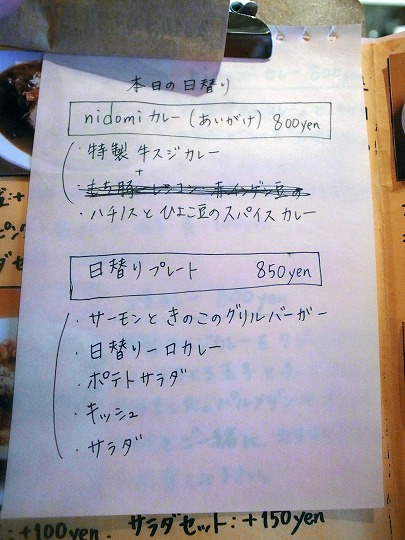 本日の日替り
nidomi カレー (あいがけ) 800yen
・特製 牛スジカレー
+
・ハチノスとひよこ豆のスパイスカレー
日替りプレート 850yen
・サーモンときのこのグリルバーガー
・日替り一口カレー
・ポテトサラダ
・キッシュ
・サラダ
:+100yen サラダセット:+150yen